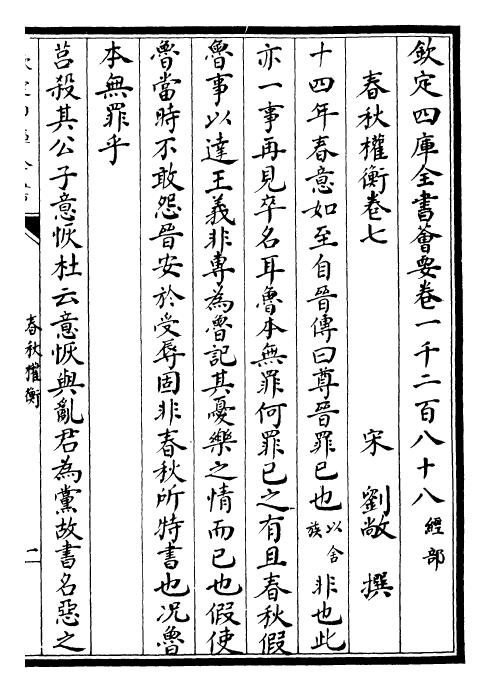 欽定四庫全書薈要卷一千二百八十八經部
春秋權衡卷七
宋 劉敞 撰
十四年春意如至自晉傳曰尊晉罪已也以舍族非也此
亦一事再見卒名耳魯本無罪何罪已之有且春秋假
魯事以達王義非專為魯記其憂樂之情而已也假使
魯當時不敢怨晉安於受辱固非春秋所特書也况魯
本無罪乎
莒殺其公子意恢杜云意恢與亂君為黨故書名惡之
春秋權衡
一